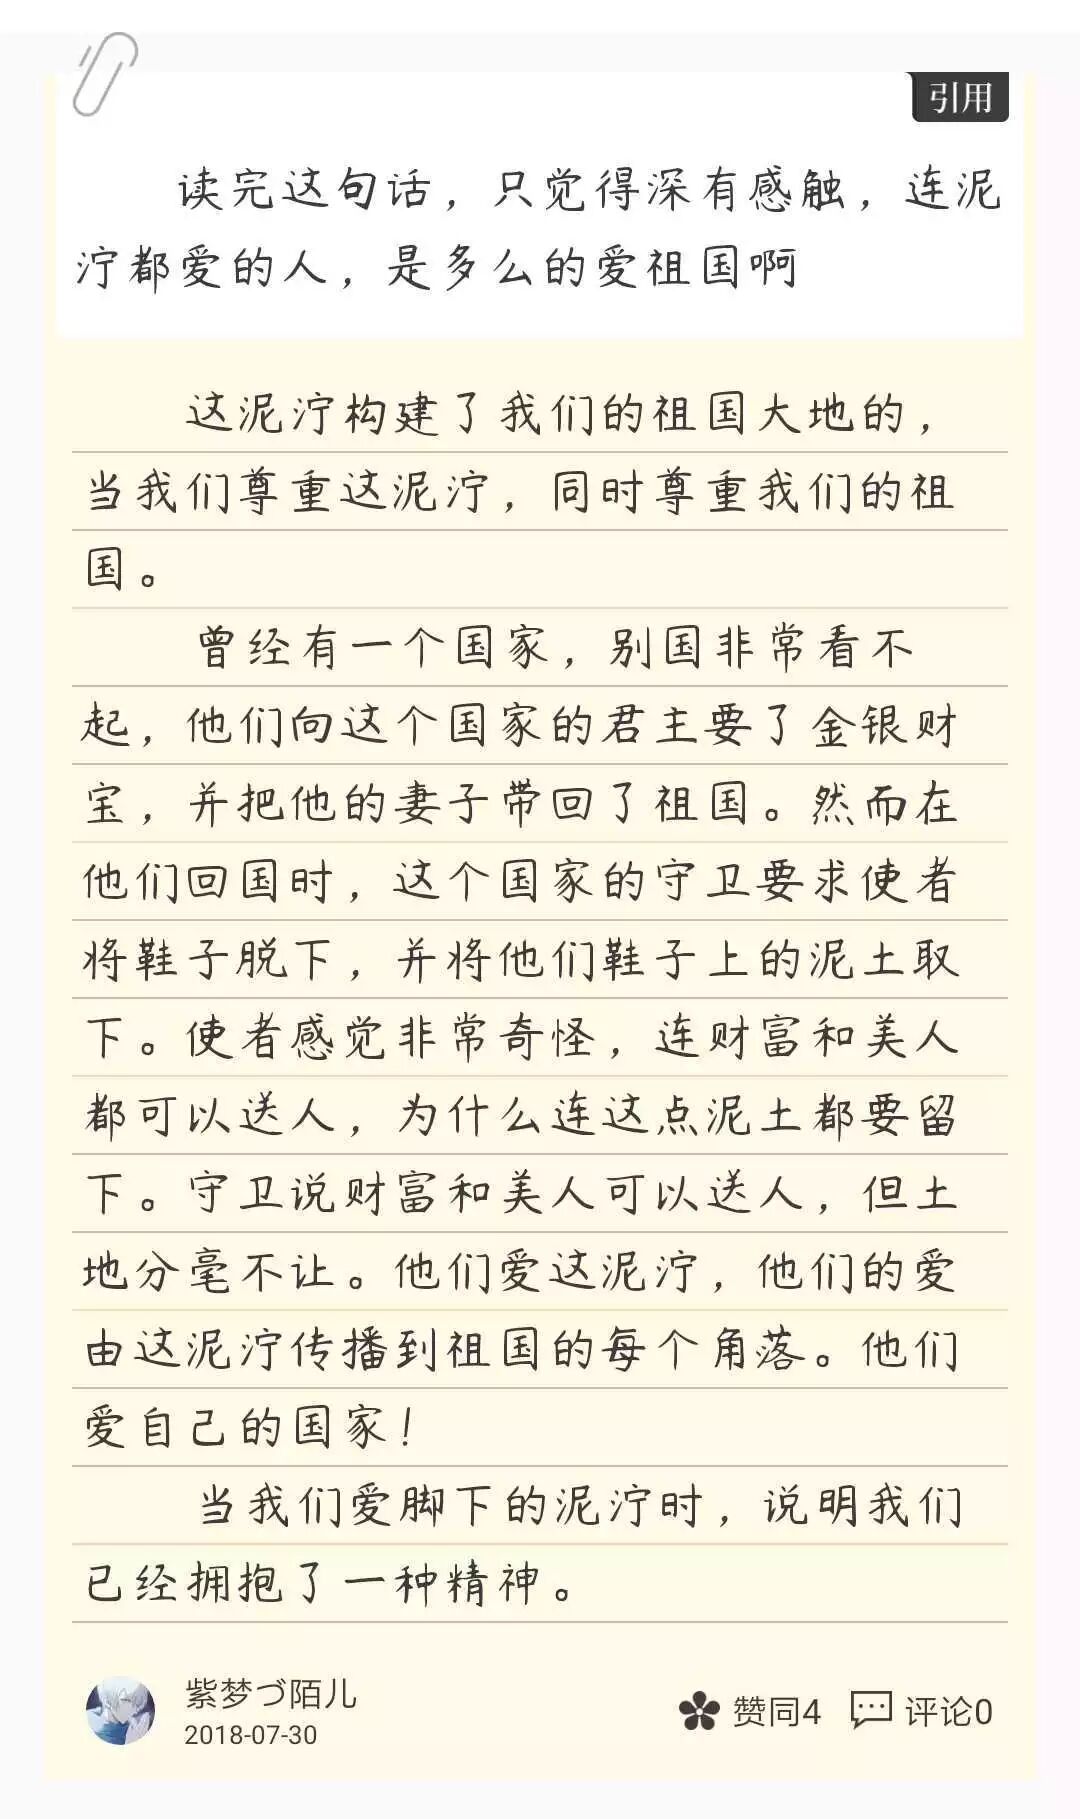 引用
读完这句话，只觉得深有感触，连泥
泞都爱的人，是多么的爱祖国啊
这泥泞构建了我们的祖国大地的，
当我们尊重这泥泞，同时尊重我们的祖
国。
曾经有一个国家，别国非常看不
起，他们向这个国家的君主要了金银财
宝，并把他的妻子带回了祖国。然而在
他们回国时，这个国家的守卫要求使者
将鞋子脱下，并将他们鞋子上的泥土取
下。使者感觉非常奇怪，连财富和美人
都可以送人，为什么连这点泥土都要留
下。守卫说财富和美人可以送人，但土
地分毫不让。他们爱这泥泞，他们的爱
由这泥泞传播到祖国的每个角落。他们
爱自己的国家！
当我们爱脚下的泥泞时，说明我们
已经拥抱了一种精神。
紫梦づ陌儿
2018-07-30
赞同4
评论0